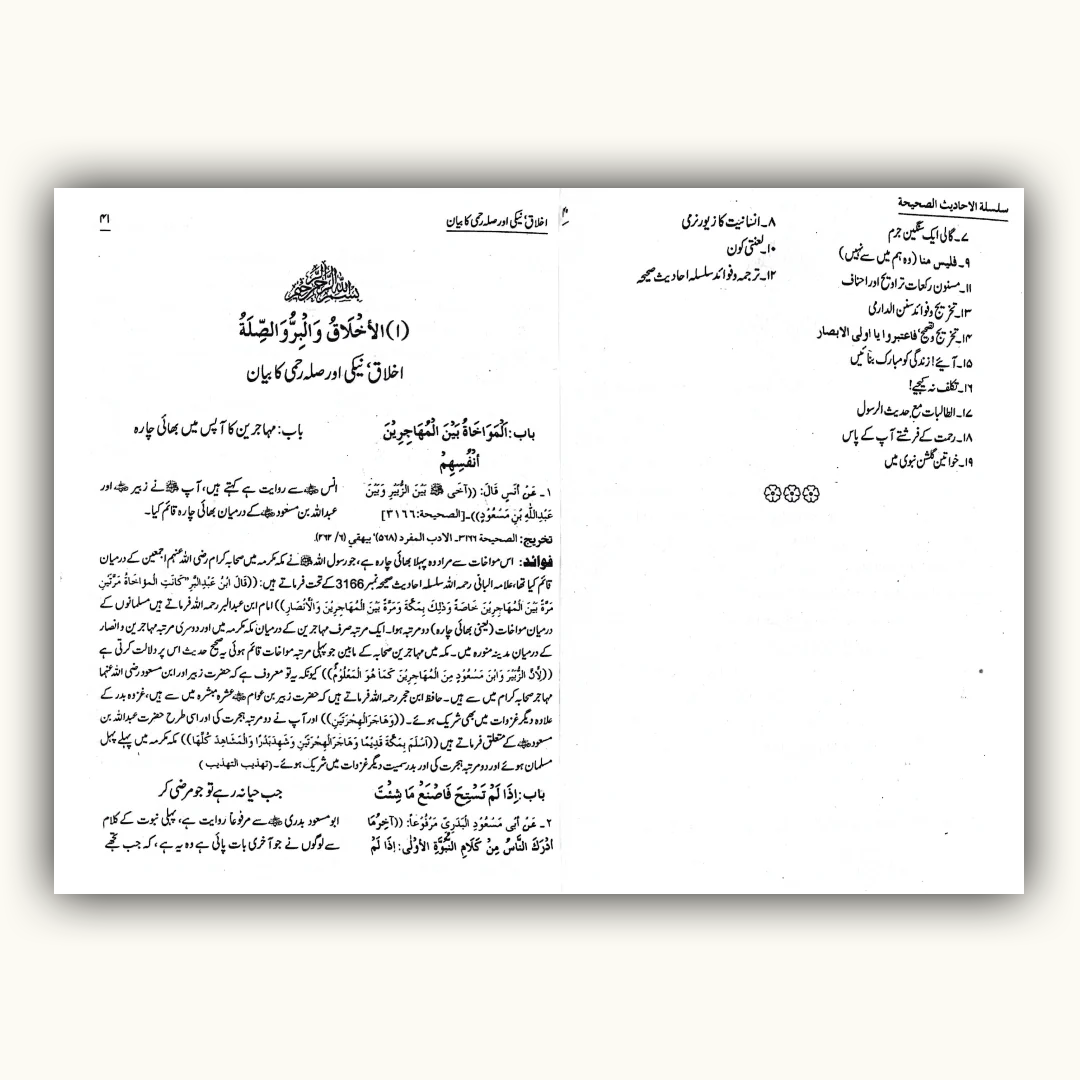 سلسلة الاحاديث الصحيحة
۴۰
۷۔گالی ایک سنگین جرم
۸۔انسانیت کا زیور نرمی
۹۔فلیس منا (وہ ہم میں سے نہیں)
۱۰۔لعنتی کون
۱۱۔مسنون رکعات تراویح اور احناف
۱۲۔ترجمہ وفوائد سلسلہ احادیث صحیحہ
۱۳۔تخریج وفوائد سنن الدارمی
۱۴۔تخریج وتصحیح، فاعتبروا یا اولی الابصار
۱۵۔آیئے! زندگی کو مبارک بنائیں
۱۶۔تکلف نہ کیجیے!
۱۷۔الطالبات مع حدیث الرسول
۱۸۔رحمت کے فرشتے آپ کے پاس
۱۹۔خواتین گلشن نبوی میں
اخلاق، نیکی اور صلہ رحمی کا بیان
۴۱
بسم الله الرحمن الرحيم
(۱) الأخْلَاقُ وَالْبِرُّ وَالصِّلَةُ
اخلاق، نیکی اور صلہ رحمی کا بیان
باب: اَلْمَوَاخَاةُ بَيْنَ الْمُهَاجِرِيْنَ
أنْفُسِهِمْ
باب: مہاجرین کا آپس میں بھائی چارہ
۱۔ عَنْ أنَسٍ قَالَ: ((آخَى ﷺ بَيْنَ الزُّبَيْرِ وَبَيْنَ
عَبْدِاللّٰهِ بْنِ مَسْعُوْدٍ))۔[الصحیحة:۳۱۶۶]
انس رضی اللہ عنہ سے روایت ہے کہتے ہیں، آپ ﷺ نے زبیر رضی اللہ عنہ اور
عبداللہ بن مسعود رضی اللہ عنہ کے درمیان بھائی چارہ قائم کیا۔
تخریج: الصحیحة ۳۱۶۶۔ الادب المفرد (۵۶۸)، بیهقی (۶/ ۲۶۲).
فوائد: اس مواخات سے مراد وہ پہلا بھائی چارہ ہے، جو رسول اللہ ﷺ نے مکہ مکرمہ میں صحابہ کرام رضی اللہ عنہم اجمعین کے درمیان
قائم کیا تھا، علامہ البانی رحمہ اللہ سلسلہ احادیث صحیحہ نمبر 3166 کے تحت فرماتے ہیں: ((قَالَ ابْنُ عَبْدِالْبَرِّ "كَانَتِ الْمُؤاخَاةُ مَرَّتَيْنِ
مَرَّةً بَيْنَ الْمُهَاجِرِيْنَ خَاصَةً وَذٰلِكَ بِمَكَّةَ وَمَرَّةً بَيْنَ الْمُهَاجِرِيْنَ وَالْأَنْصَارِ)) امام ابن عبدالبر رحمہ اللہ فرماتے ہیں مسلمانوں کے
درمیان مواخات (یعنی بھائی چارہ) دو مرتبہ ہوا۔ ایک مرتبہ صرف مہاجرین کے درمیان مکہ مکرمہ میں اور دوسری مرتبہ مہاجرین وانصار
کے درمیان مدینہ منورہ میں۔ مکہ میں مہاجرین صحابہ کے مابین جو پہلی مرتبہ مواخات قائم ہوئی یہ صحیح حدیث اس پر دلالت کرتی ہے
((لِأَنَّ الزُّبَيْرَ وَابْنَ مَسْعُوْدٍ مِنَ الْمُهَاجِرِيْنَ كَمَا هُوَ الْمَعْلُوْمُ)) کیونکہ یہ تو معروف ہے کہ حضرت زبیر اور ابن مسعود رضی اللہ عنہما
مہاجر صحابہ کرام میں سے ہیں۔ حافظ ابن حجر رحمہ اللہ فرماتے ہیں کہ حضرت زبیر بن عوام رضی اللہ عنہ عشرہ مبشرہ میں سے ہیں، غزوہ بدر کے
علاوہ دیگر غزوات میں بھی شریک ہوئے۔ ((وَهَاجَرَ الْهِجْرَتَيْنِ)) اور آپ نے دو مرتبہ ہجرت کی اور اسی طرح حضرت عبداللہ بن
مسعود رضی اللہ عنہ کے متعلق فرماتے ہیں ((اَسْلَمَ بِمَكَّةَ قَدِيْمًا وَهَاجَرَ الْهِجْرَتَيْنِ وَشَهِدَ بَدْرًا وَالْمَشَاهِدَ كُلَّهَا)) مکہ مکرمہ میں پہلے پہل
مسلمان ہوئے اور دو مرتبہ ہجرت کی اور بدر سمیت دیگر غزوات میں شریک ہوئے۔ (تهذیب التهذیب)
باب: إِذَا لَمْ تَسْتَحِ فَاصْنَعْ مَا شِئْتَ
جب حیا نہ رہے تو جو مرضی کر
۲۔ عَنْ أَبِى مَسْعُوْدِ الْبَدَرِيِّ مَرْفُوْعاً: ((آخِرُ مَا
اَدْرَكَ النَّاسُ مِنْ كَلَامِ النُّبُوَّةِ الأُوْلٰى: إِذَا لَمْ
ابو مسعود بدری رضی اللہ عنہ سے مرفوعاً روایت ہے، پہلی نبوت کے کلام
سے لوگوں نے جو آخری بات پائی ہے وہ یہ ہے، کہ جب تجھے